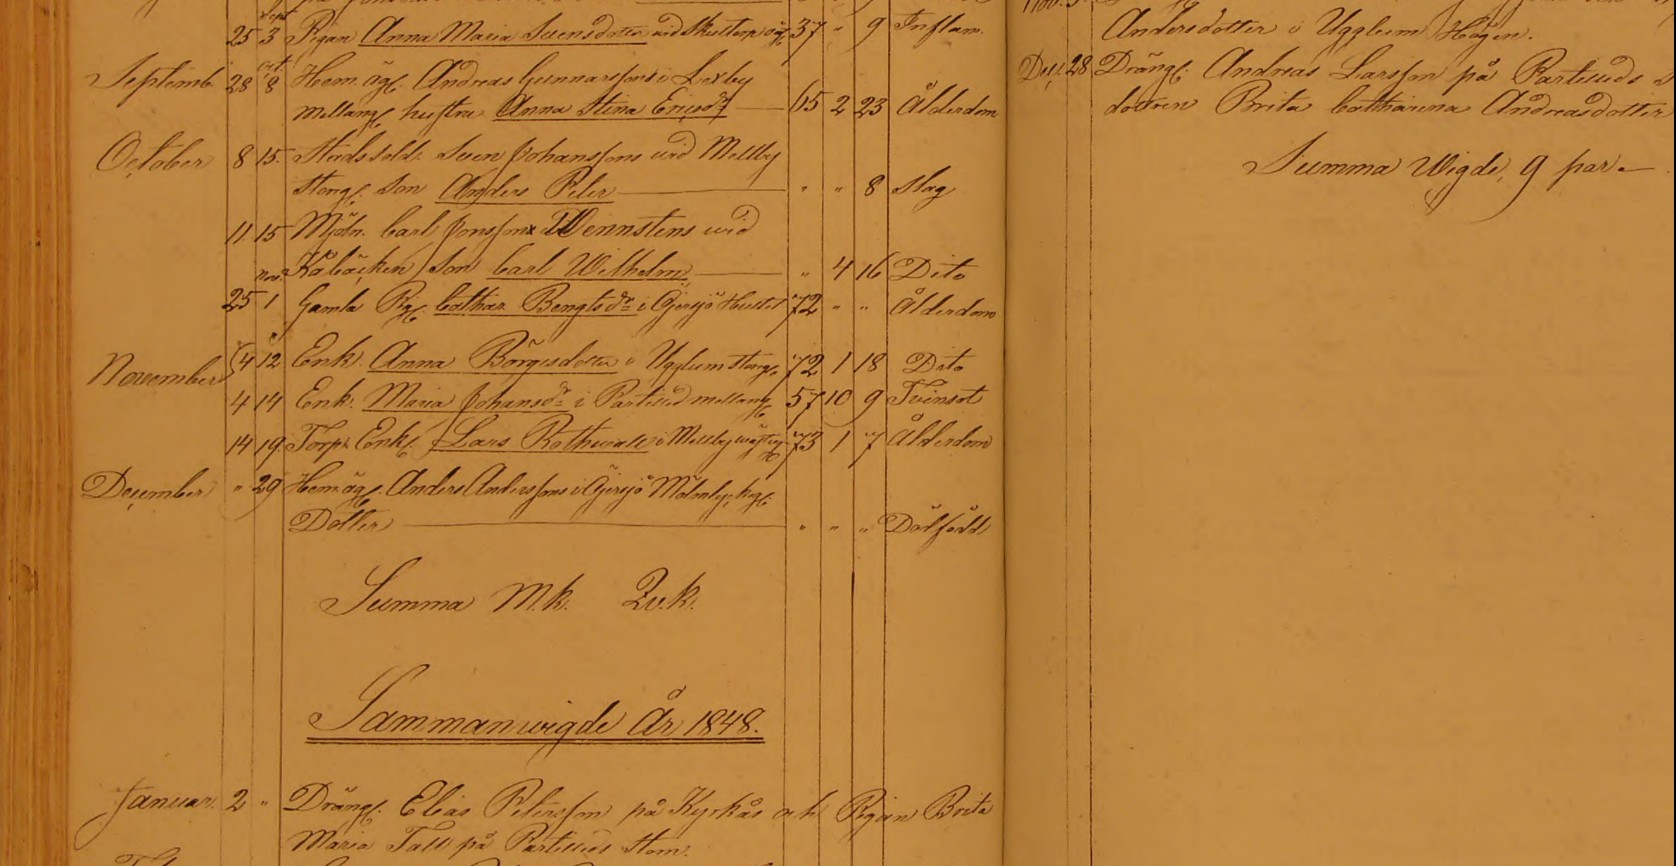 Sept.
25 3 Pigan Anna Maria Svensdotter wid Skattorp 37 " 9 Inflam.
oct.
Septemb. 28 8 Hem.äg. Andreas Gunnarssons i Loxby
mellang. hustru Anna Stina Ericsdr 65 2 23 Ålderdom
October 8 15 Sven Johanssons wid Mellby
Storeg. son Anders Peter " " 8 Slag
11 15 Mjöln. Carl Jonssons Wennstens wid
nov. Kåbäcken son Carl Wilhelm " 4 16 Dito
25 1 Gamla Pig. Cathar. Bengtsdr i 72 " " Ålderdom
November 4 12 Enk. Anna Börgesdotter i Ugglum Storeg. 72 1 18 Dito
4 14 Enk. Maria Johansdr i Partilled mellang. 57 10 9 Tvinsot
14 19 Torp. Enkl. Lars Rothwall i Mellby 73 1 7 Ålderdom
December " 29 Hem.äg. Anders Anderssons i
Dotter " " " Dödfödd
Summa M.k. Qv.k.
Sammanvigde År 1848.
Januar. 2 " Dräng. Elias Petersson på Kyrkås och Pigan Brita
Maria Tall på Partilleds Stom.
Nov. 5
Andersdotter i Ugglum Högen.
Dec. 28 Dräng. Andreas Larsson på Partilleds
dottren Brita Catharina Andreasdotter
Summa Wigde, 9 par.